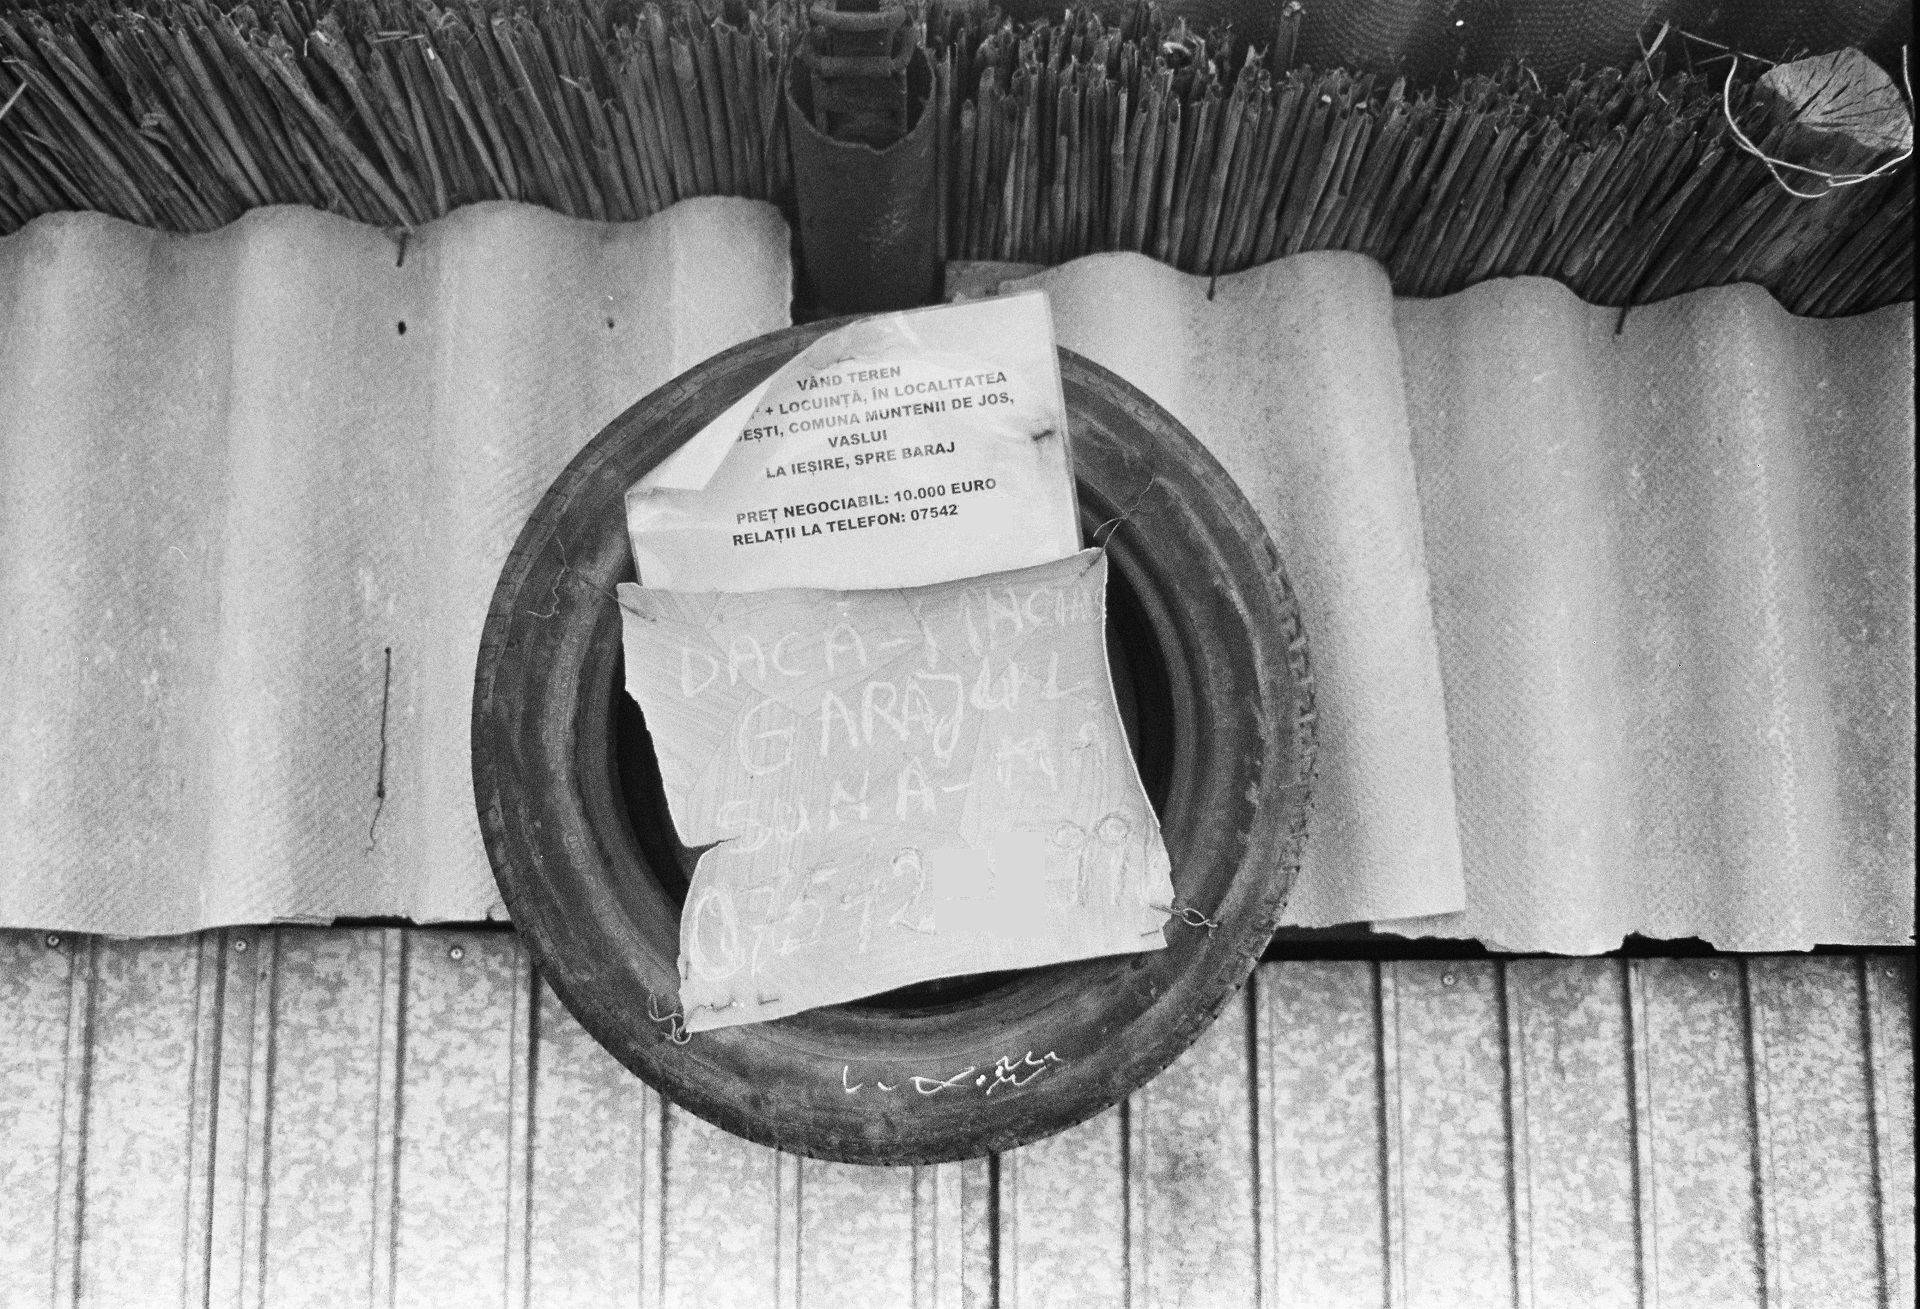 VÂND TEREN
+ LOCUINȚĂ, ÎN LOCALITATEA
EȘTI, COMUNA MUNTENII DE JOS,
VASLUI
LA IEȘIRE, SPRE BARAJ
PREȚ NEGOCIABIL: 10.000 EURO
RELAȚII LA TELEFON: 07542
DACĂ-I ÎNCHIS
GARAJUL
SUNĂ-MĂ
07542